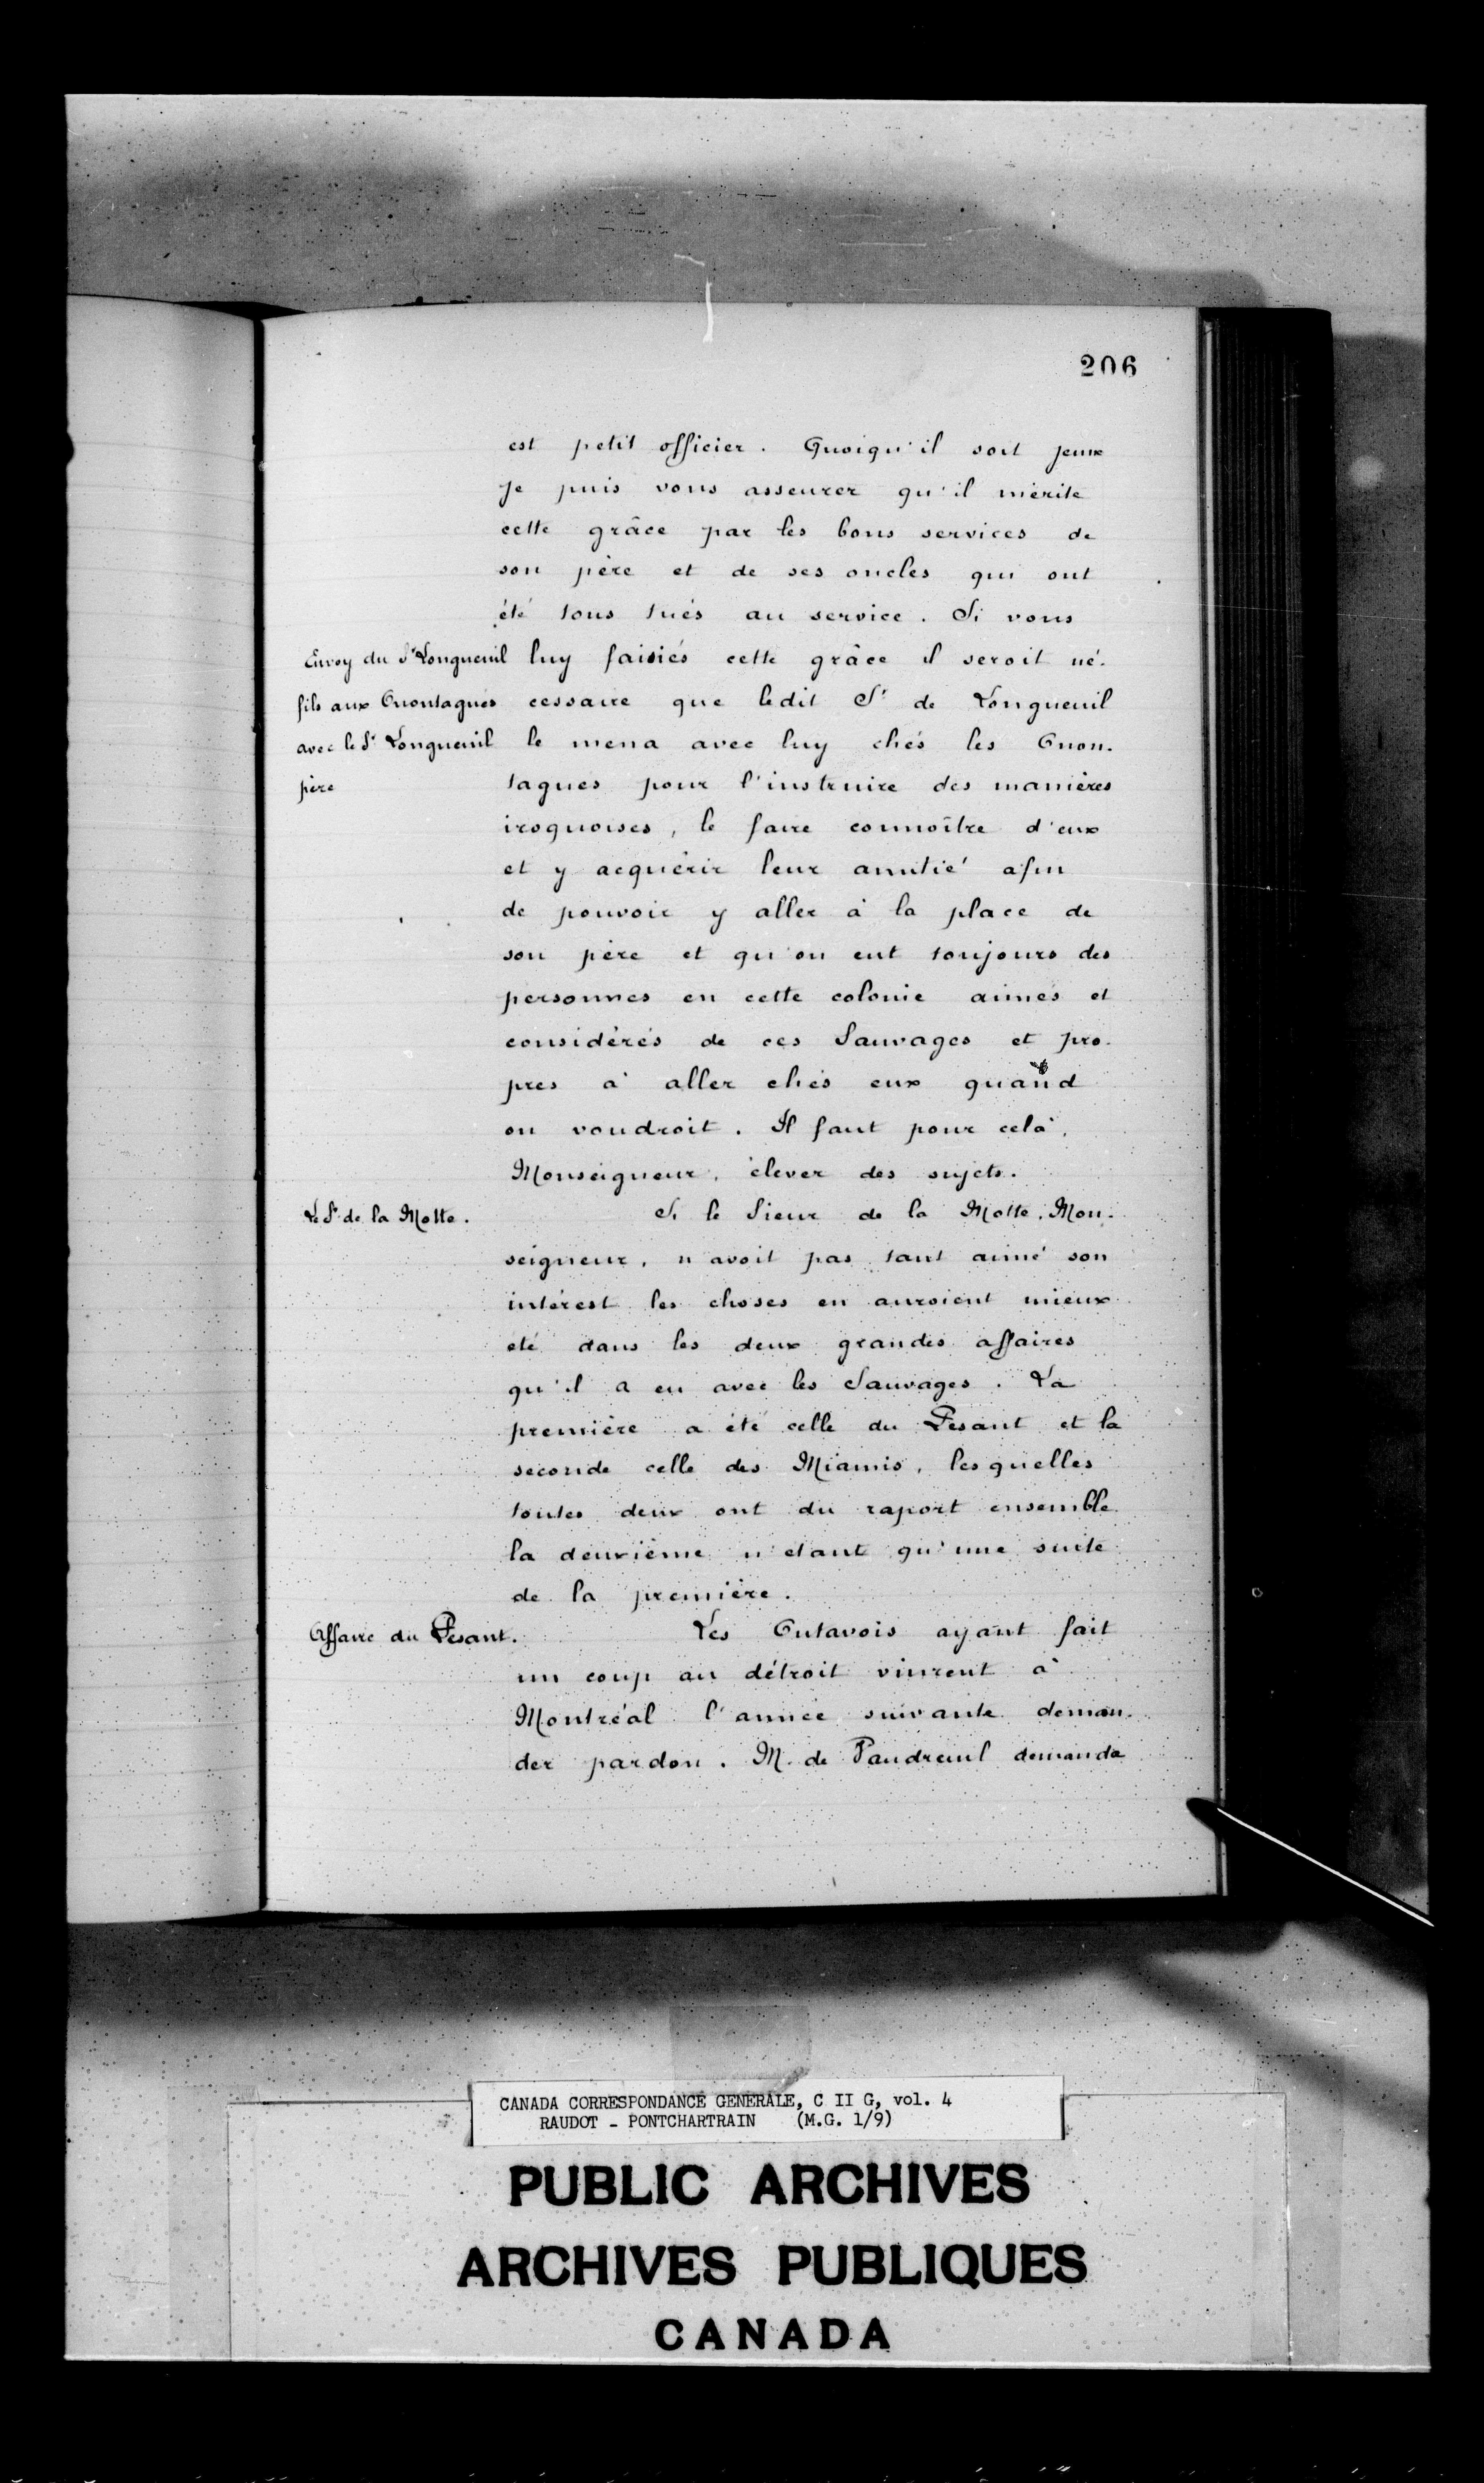 206
est petit officier. Quoiqu'il soit jeune
je puis vous asseurer qu'il mérite
cette grâce par les bons services de
son père et de ses oncles qui ont
été tous tués au service. Si vous
Envoy du Sr Longueuil
fils aux Onontagués
avec le Sr Longueuil
père
luy faisiés cette grâce il seroit né-
cessaire que ledit Sr de Longueuil
le mena avec luy chés les Onon-
tagues pour l'instruire des manières
iroquoises, le faire connoître d'eux
et y acquérir leur amitié afin
de pouvoir y aller à la place de
son père et qu'on eut toujours des
personnes en cette colonie aimés et
considérés de ces Sauvages et pro-
pres à aller chés eux quand
on voudroit. Il faut pour celà,
Monseigneur, élever des sujets.
Le Sr de la Motte.
Si le Sieur de la Motte, Mon-
seigneur, n'avoit pas tant aimé son
intérest les choses en auroient mieux
eté dans les deux grandes affaires
qu'il a eu avec les Sauvages. La
première a été celle du Pesant et la
seconde celle des Miamis, lesquelles
toutes deux ont du raport ensemble
la deuxième n'etant qu'une suite
de la première.
Affaire du Pesant.
Les Outavois ayant fait
un coup au détroit vinrent à
Montréal l'année suivante deman-
der pardon. M. de Vaudreuil demanda
CANADA CORRESPONDANCE GENERALE, C II G, vol. 4
RAUDOT - PONTCHARTRAIN (M.G. 1/9)
PUBLIC ARCHIVES
ARCHIVES PUBLIQUES
CANADA